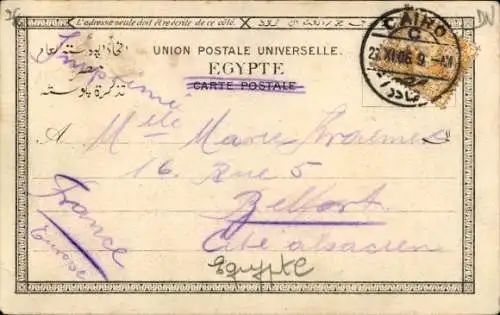 L'adresse seule doit être écrite de ce côté.
CAIRO
C
27 XI 06 9 - AM
UNION POSTALE UNIVERSELLE.
اتحاد البوستة العام
EGYPTE
مصر
CARTE POSTALE
تذكرة بوستة
Imprimé
A Mlle Marie Kraemer
16. Rue 5
Belfort
Cité alsacienne
France
Europe
Egypte